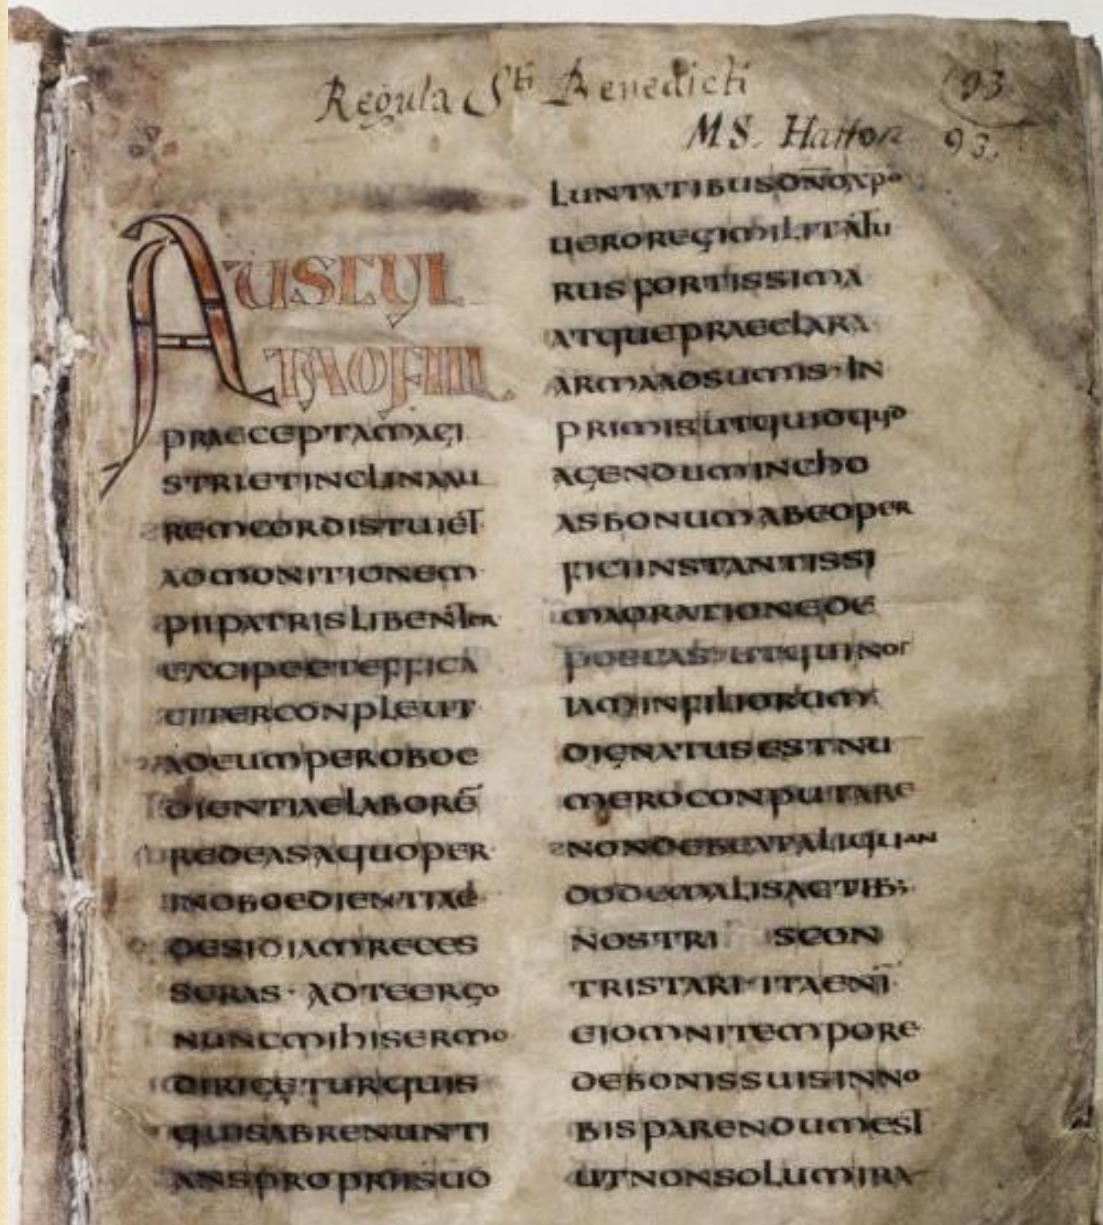 Regula Sti Benedicti
93
MS. Hatton 93.
AUSCUL
TAOFILI
PRAECEPTAMAGI
STRIETINCLINAAU
REMCORDISTUIET
ADMONITIONEM
PIIPATRISLIBENTER
EXCIPEETEFFICA
CITERCONPLEUT
ADEUMPEROBOE
DIENTIAELABORĒ
REDEASAQUOPER
INOBOEDIENTIAE
DESIDIAMRECES
SERAS· ADTEERGO
NUNCMIHISERMO
DIRIGETURQUIS
QUISABRENUNTI
ANSPROPRIISUO
LUNTATIBUSDNOXPO
UEROREGIMILITATU
RUSFORTISSIMA
ATQUEPRAECLARA
ARMAADSUMIS· IN
PRIMISUTQUIDQUID
AGENDUMINCHO
ASBONUMABEOPER
FICIINSTANTISSI
MAORATIONEDE
POSCAS· UTQUINOS
IAMINFILIORUM
DIGNATUSESTNU
MEROCONPUTARE
NONDEBEATALIQUAN
DODEMALISACTIB;
NOSTRI SCON
TRISTARI· ITAENĪ
EIOMNITEMPORE
DEBONISSUISINNO
BISPARENDUMEST
UTNONSOLUMIRA